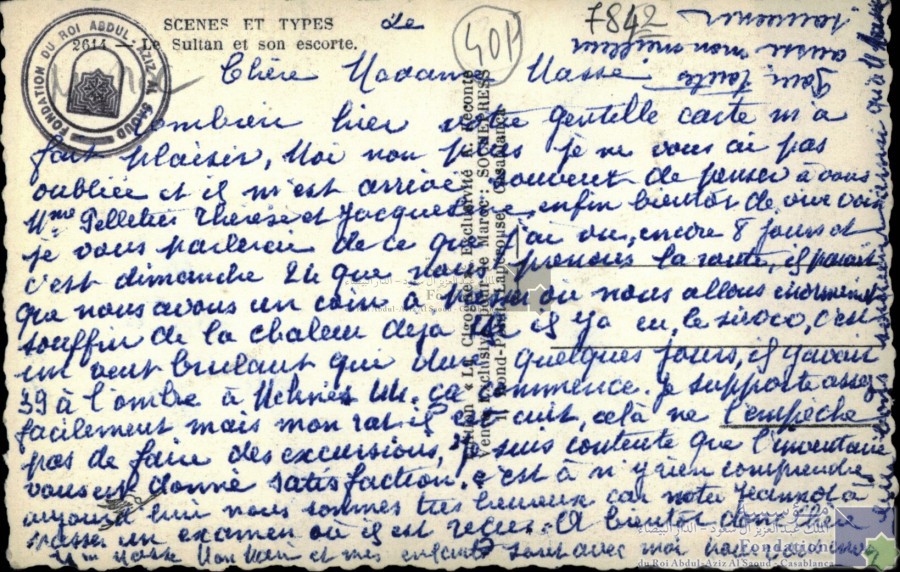 SCENES ET TYPES
2614 — Le Sultan et son escorte.
7842
401
FONDATION DU ROI ABDUL AZIZ AL SAOUD
Chère Madame Masse
Combien hier votre gentille carte m'a
fait plaisir, Moi non plus je ne vous ai pas
oubliée et il m'est arrivé souvent de penser à vous
Mme Pelletier Thérèse et Jacqueline, enfin bientôt de vive voix
je vous parlerai de ce que j'ai vu, encore 8 jours et
c'est dimanche 24 que nous prenons la route, il parait
que nous avons un coin à passer où nous allons énormément
souffrir de la chaleur déjà ici il y a eu, le siroco, c'est
un vent brulant qui dure quelques jours, il y avait
39 à l'ombre à Meknès ça commence. je supporte assez
facilement mais mon rat il est cuit, celà ne l'empêche
pas de faire des excursions, je suis contente que l'inventaire
vous est donné satisfaction. c'est à n'y rien comprendre
aujourd'hui nous sommes très heureux car notre Jeannot à
passer un examen où il est reçu. A bientôt donc chère
Mme Masse Mon Mari et mes enfants sont avec moi pour
Pour toutes
aussi mon meilleur
souvenir
Edition « La Cigogne » Exclusivité R. Réconte
Vente exclusive pour le Maroc : SOCHEPRESS
1, Rond-Point Lapeyrouse, Casablanca
مؤسسة
الملك عبد العزيز آل سعود - الدار البيضاء
Fondation
du Roi Abdul-Aziz Al Saoud - Casablanca